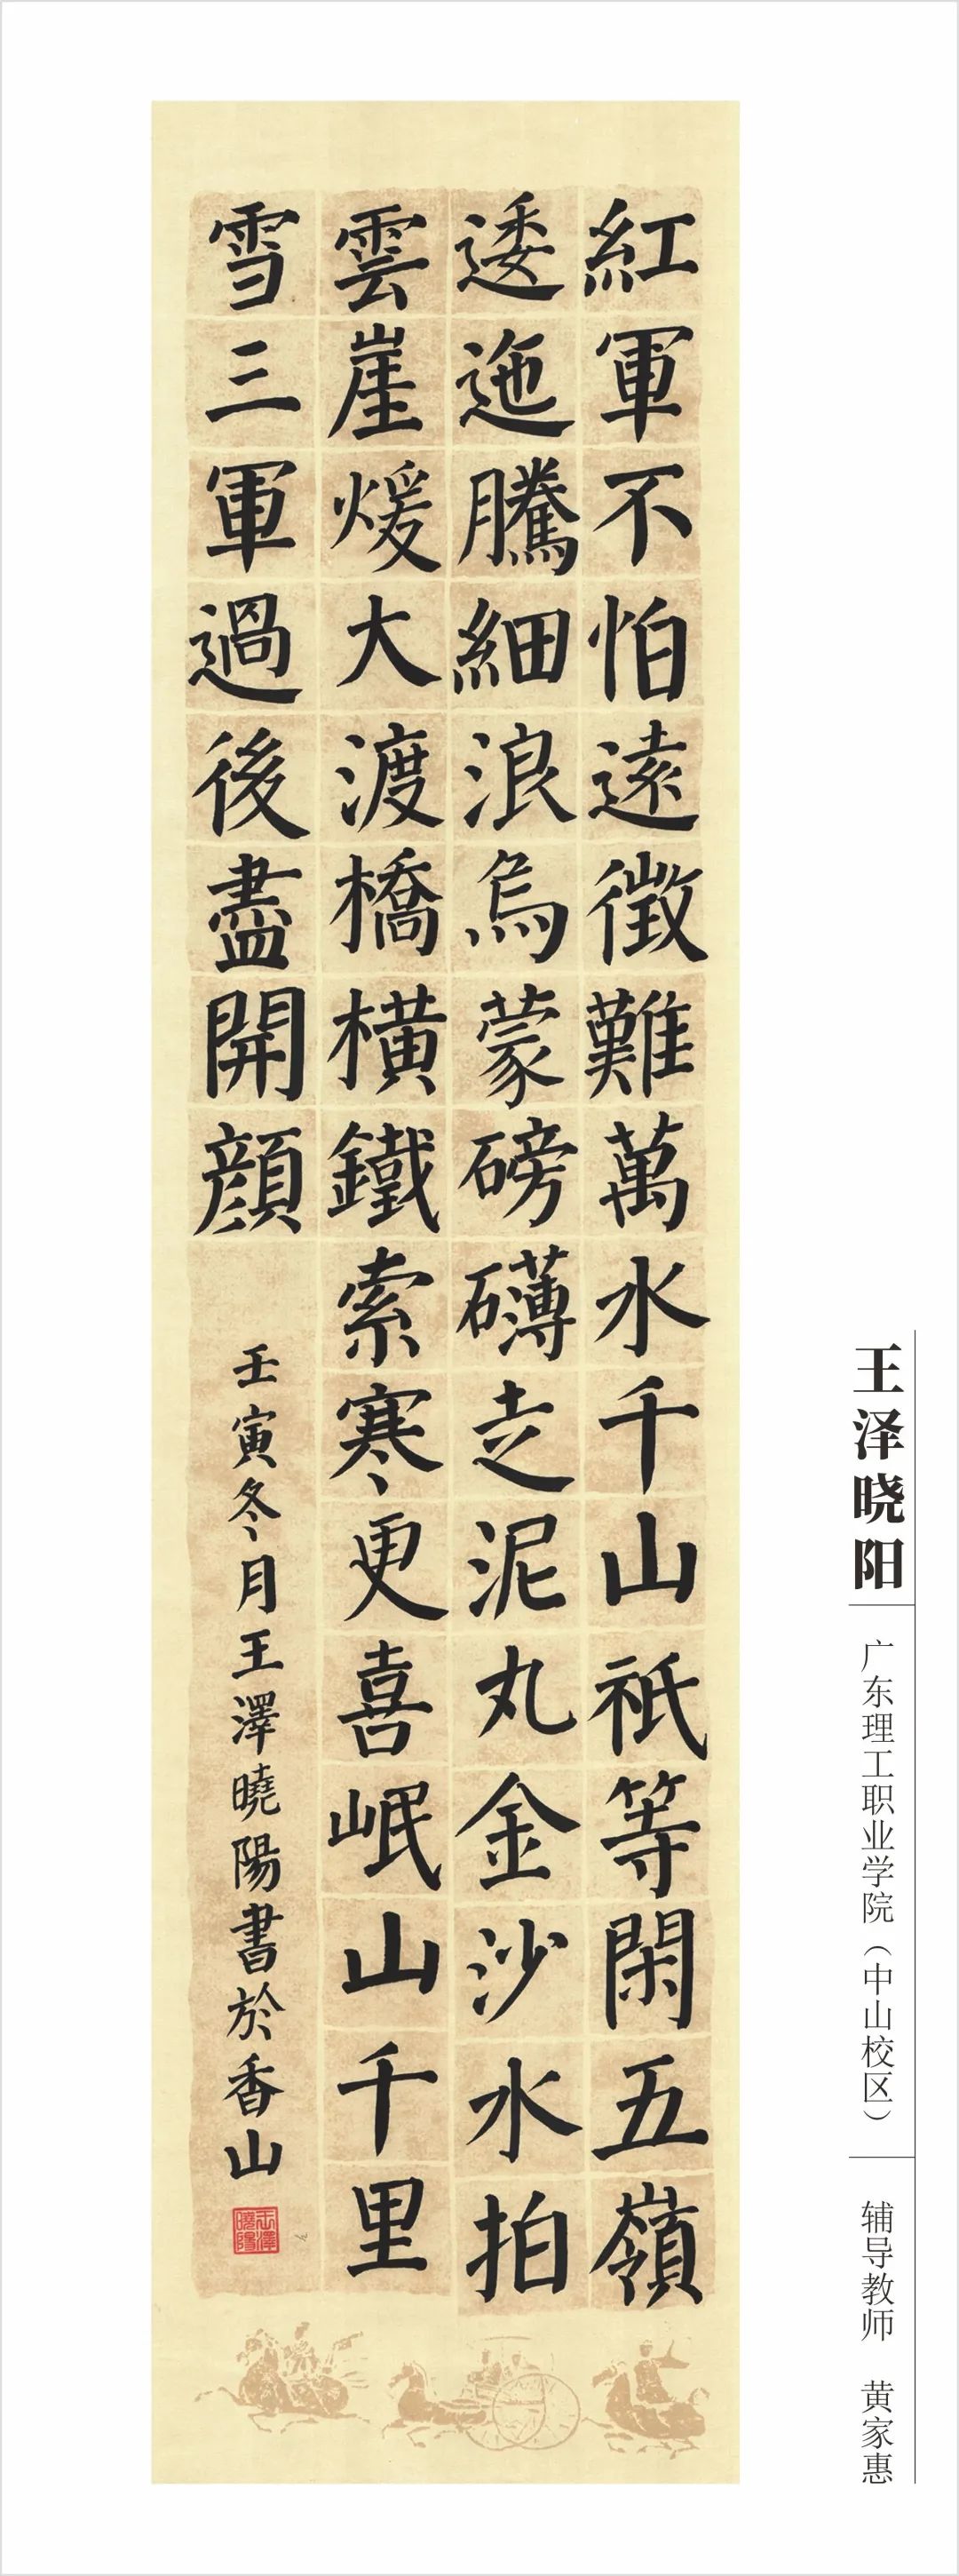 紅軍不怕遠徵難萬水千山祇等閑五嶺
逶迤騰細浪烏蒙磅礴走泥丸金沙水拍
雲崖煖大渡橋橫鐵索寒更喜岷山千里
雪三軍過後盡開顔
壬寅冬月王澤曉陽書於香山
王澤曉陽
王泽晓阳
广东理工职业学院（中山校区）
辅导教师 黄家惠